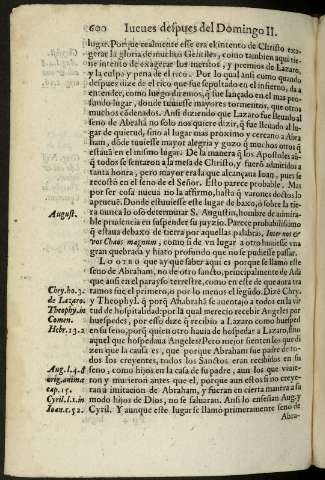 600 Iueues despues del Domingo II.
lugar. Porque realmente esse era el intento de Christo exa-
gerar la gloria de muchos Gentiles, como tambien aqui tie-
ne intento de exagerar los meritos, y premios de Lazaro,
y la culpa y pena de el rico. Por lo qual ansi como quando
despues dize de el rico que fue sepultado en el infierno, da a
entender, como luego diremos, q̃ fue lançado en el mas pro-
fundo lugar, donde tuuiesse mayores tormentos, que otros
muchos cõdenados. Ansi diziendo que Lazaro fue lleuado al
seno de Abrahã no solo nos quiere dezir, q̃ fue lleuado al lu-
gar de quietud, sino al lugar mas proximo y cercano a Abra
ham, dõde tuuiesse mayor alegria y gozo q̃ muchos otros q̃
estauã en el mismo lugar. De la manera q̃ los Apostoles aũ
q̃ todos se sentaron a la mesa de Christo, y fuerõ admitidos a
tanta honra, pero mayor era la que alcançaua Ioan, pues se
recostò en el seno de el Señor. Esto parece probable. Mas
por ser cosa nueua no la affirmo, hasta q̃ varones doctos lo
aprueuẽ. Donde estuuiesse este lugar de baxo, ò sobre la tie
August.
rra nunca lo osò determinar S. Augustin, hombre de admira-
ble prudencia en suspender su juyzio. Parece probabilissimo
q̃ estaua debaxo de tierra por aquellas palabras, Inter nos &
vos Chaos magnum, como si de vn lugar a otro huuiesse vna
gran quebrada y hiato profundo que no se pudiesse passar.
LO OTRO que ay que saber aqui es porque se llamo este
seno de Abraham, no de otro sancto, principalmente de Adã
que aun en el parayso terrestre, como en este de que aora tra
Chry.ho.3.
tamos fue el primero, o por lo menos el segũdo. Dizẽ Chry
de Lazaro.
y Theophyl. q̃ porq̃ Abrahã se auentajo a todos en la vir
Theophy.in
tud de hospitalidad: por la qual merecio recebir Angeles por
Comen.
huespedes, por esso dize q̃ recibio a Lazaro como huesped
Hebr.13.2
en su seno, porq̃ quien otro hauia de hospedar a Lazaro, sino
aquel que hospedaua Angeles? Pero mejor sienten los que di
zen que la causa es, que porque Abraham fue padre de to-
dos los creyentes, todos los Sanctos eran recebidos en su
Aug.l.4.d
seno, como hijos en la casa de su padre, aun los que viuie-
orig.anima
ron y murieron antes que el, porque aun estos no creye-
cap.15.
ran a imitacion de Abraham, y fueran en cierta manera a su
Cyril.l.1.in
modo hijos de Dios, no se saluaran. Ansi lo enseñan Aug. y
Ioan.c.52.
Cyril. Y aunque este lugar se llamò primeramente seno de
Abra-